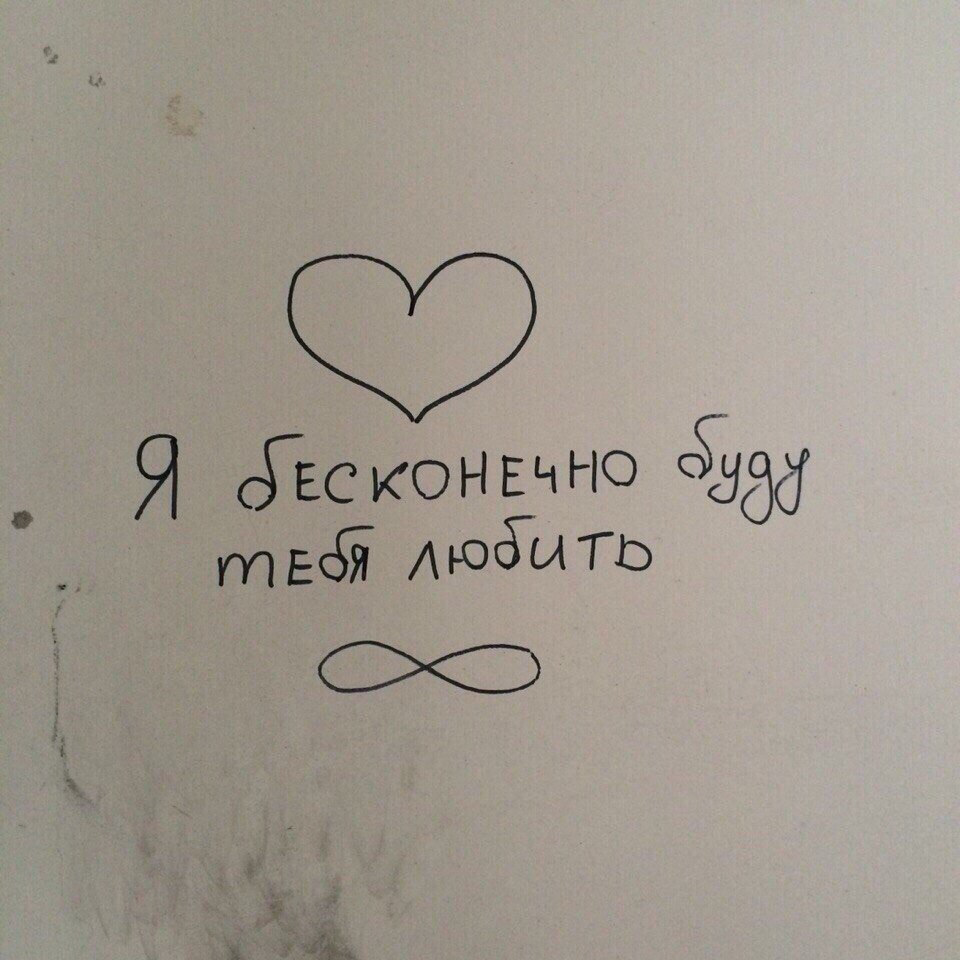 Я бесконечно буду
тебя любить